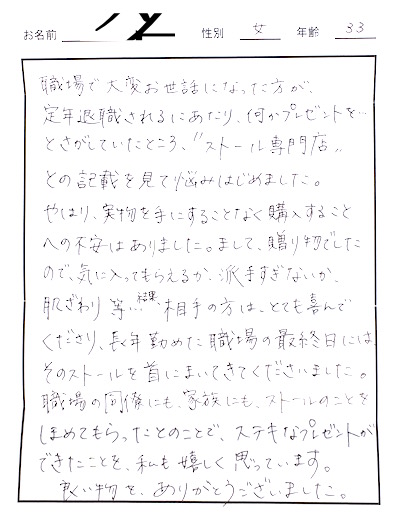 お名前 性別 女 年齢 33
職場で大変お世話になった方が、
定年退職されるにあたり、何かプレゼントを…
とさがしていたところ、〝ストール専門店〟
との記載を見て悩みはじめました。
やはり、実物を手にすることなく購入すること
への不安はありました。まして、贈り物でした
ので、気に入ってもらえるか、派手すぎないか、
肌ざわり等… 結果、相手の方は、とても喜んで
くださり、長年勤めた職場の最終日には
そのストールを首にまいてきてくださいました。
職場の同僚にも、家族にも、ストールのことを
ほめてもらったとのことで、ステキなプレゼントが
できたことを、私も嬉しく思っています。
良い物を、ありがとうございました。